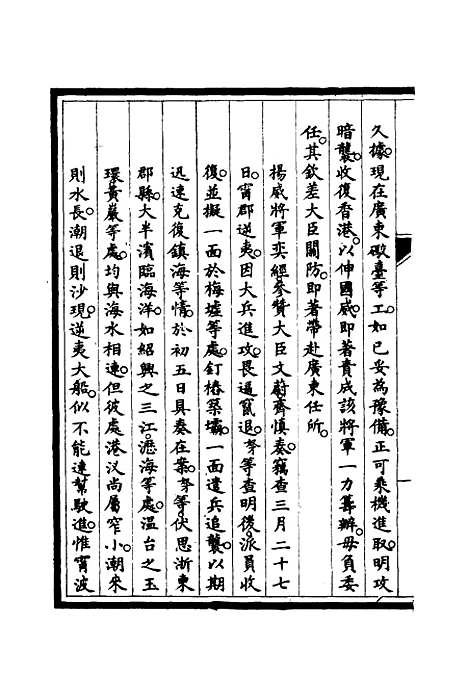 久據。現在廣東礮臺等工。如已妥為豫備。正可乘機進取。明攻
暗襲。收復香港。以伸國威。即著責成該將軍一力籌辦。毋負委
任。其欽差大臣關防。即著帶赴廣東任所。
揚威將軍奕經參贊大臣文蔚齊慎奏。竊查三月二十七
日。甯郡逆夷。因大兵進攻。畏逼竄退。等查明後。派員收
復。並擬一面於梅墟等處。釘樁築壩。一面遣兵追襲。以期
迅速克復鎮海等情。於初五日具奏在案。等伏思浙東
郡縣。大半濱臨海洋。如紹興之三江。瀝海等處。温台之玉
環黃巖等處。均與海水相連。但彼處港汊尚屬窄小。潮來
則水長。潮退則沙現。逆夷大船。似不能連幫駛進。惟甯波